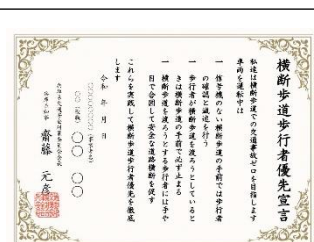 横断歩道歩行者優先宣言
私達は横断歩道での交通事故ゼロを目指します
車両を運転中は
一 信号機のない横断歩道の手前では歩行者
の確認と減速を行う
一 歩行者が横断歩道を渡ろうとしていると
きは横断歩道の手前で必ず止まる
一 横断歩道を渡ろうとする歩行者には手や
目で合図して安全な道路横断を促す
これらを実践して横断歩道歩行者優先を徹底
します
令和 年 月 日
○○○○○○○○(事業者名)
○○(役職) ○○ ○○
兵庫県知事 齋藤 元彦